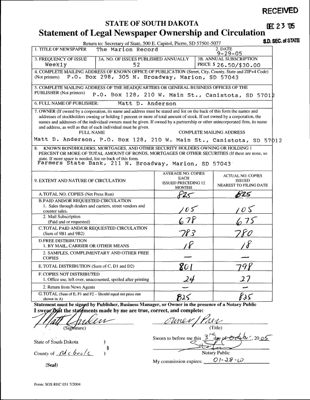 RECEIVED
DEC 23 '05
S.D. SEC. of STATE
STATE OF SOUTH DAKOTA
Statement of Legal Newspaper Ownership and Circulation
Return to: Secretary of State, 500 E. Capitol, Pierre, SD 57501-5077
1. TITLE OF NEWSPAPER The Marion Record
2. DATE 9-29-05
3. FREQUENCY OF ISSUE Weekly
3A. NO. OF ISSUES PUBLISHED ANNUALLY 52
3B. ANNUAL SUBSCRIPTION PRICE $ 26.50/$30.00
4. COMPLETE MAILING ADDRESS OF KNOWN OFFICE OF PUBLICATION (Street, City, County, State and ZIP+4 Code)
(Not printers) P.O. Box 298, 305 N. Broadway, Marion, SD 57043
5. COMPLETE MAILING ADDRESS OF THE HEADQUARTERS OR GENERAL BUSINESS OFFICES OF THE
PUBLISHER (Not printer) P.O. Box 128, 210 W. Main St., Canistota, SD 57012
6. FULL NAME OF PUBLISHER: Matt D. Anderson
7. OWNER (If owned by a corporation, its name and address must be stated and also on the back of this form the names and
addresses of stockholders owning or holding 1 percent or more of total amount of stock. If not owned by a corporation, the
names and addresses of the individual owners must be given. If owned by a partnership or other unincorporated firm, its name
and address, as well as that of each individual must be given.
FULL NAME COMPLETE MAILING ADDRESS
Matt D. Anderson, P.O. Box 128, 210 W. Main St., Canistota, SD 57012
8. KNOWN BONDHOLDERS, MORTGAGES, AND OTHER SECURITY HOLDERS OWNING OR HOLDING 1
PERCENT OR MORE OF TOTAL AMOUNT OF BONDS, MORTGAGES OR OTHER SECURITIES (If there are none, so
state. If more space is needed, list on back of this form.
Farmers State Bank, 211 N. Broadway, Marion, SD 57043
9. EXTENT AND NATURE OF CIRCULATION
AVERAGE NO. COPIES EACH ISSUED PRECEDING 12 MONTHS
ACTUAL NO. COPIES ISSUED NEAREST TO FILING DATE
A. TOTAL NO. COPIES (Net Press Run) 825 825
B. PAID AND/OR REQUESTED CIRCULATION
1. Sales through dealers and carriers, street vendors and
counter sales 105 105
2. Mail Subscription
(Paid and or requested) 678 675
C. TOTAL PAID AND/OR REQUESTED CIRCULATION
(Sum of 9B1 and 9B2) 783 780
D. FREE DISTRIBUTION
1. BY MAIL, CARRIER OR OTHER MEANS 18 18
2. SAMPLES, COMPLIMENTARY AND OTHER FREE
COPIES — —
E. TOTAL DISTRIBUTION (Sum of C, D1 and D2) 801 798
F. COPIES NOT DISTRIBUTED
1. Office use, left over, unaccounted, spoiled after printing 24 27
2. Return from News Agents — —
G. TOTAL (Sum of E, F1 and F2 - Should equal net press run
shown in A) 825 825
Statement must be signed by Publisher, Business Manager, or Owner in the presence of a Notary Public
I swear that the statements made by me are true, correct, and complete:
(Signature)
(Title)
State of South Dakota )
County of )
(Seal)
Sworn to before me this
Notary Public
My commission expires:
Form: SOS REC 051 7/2004